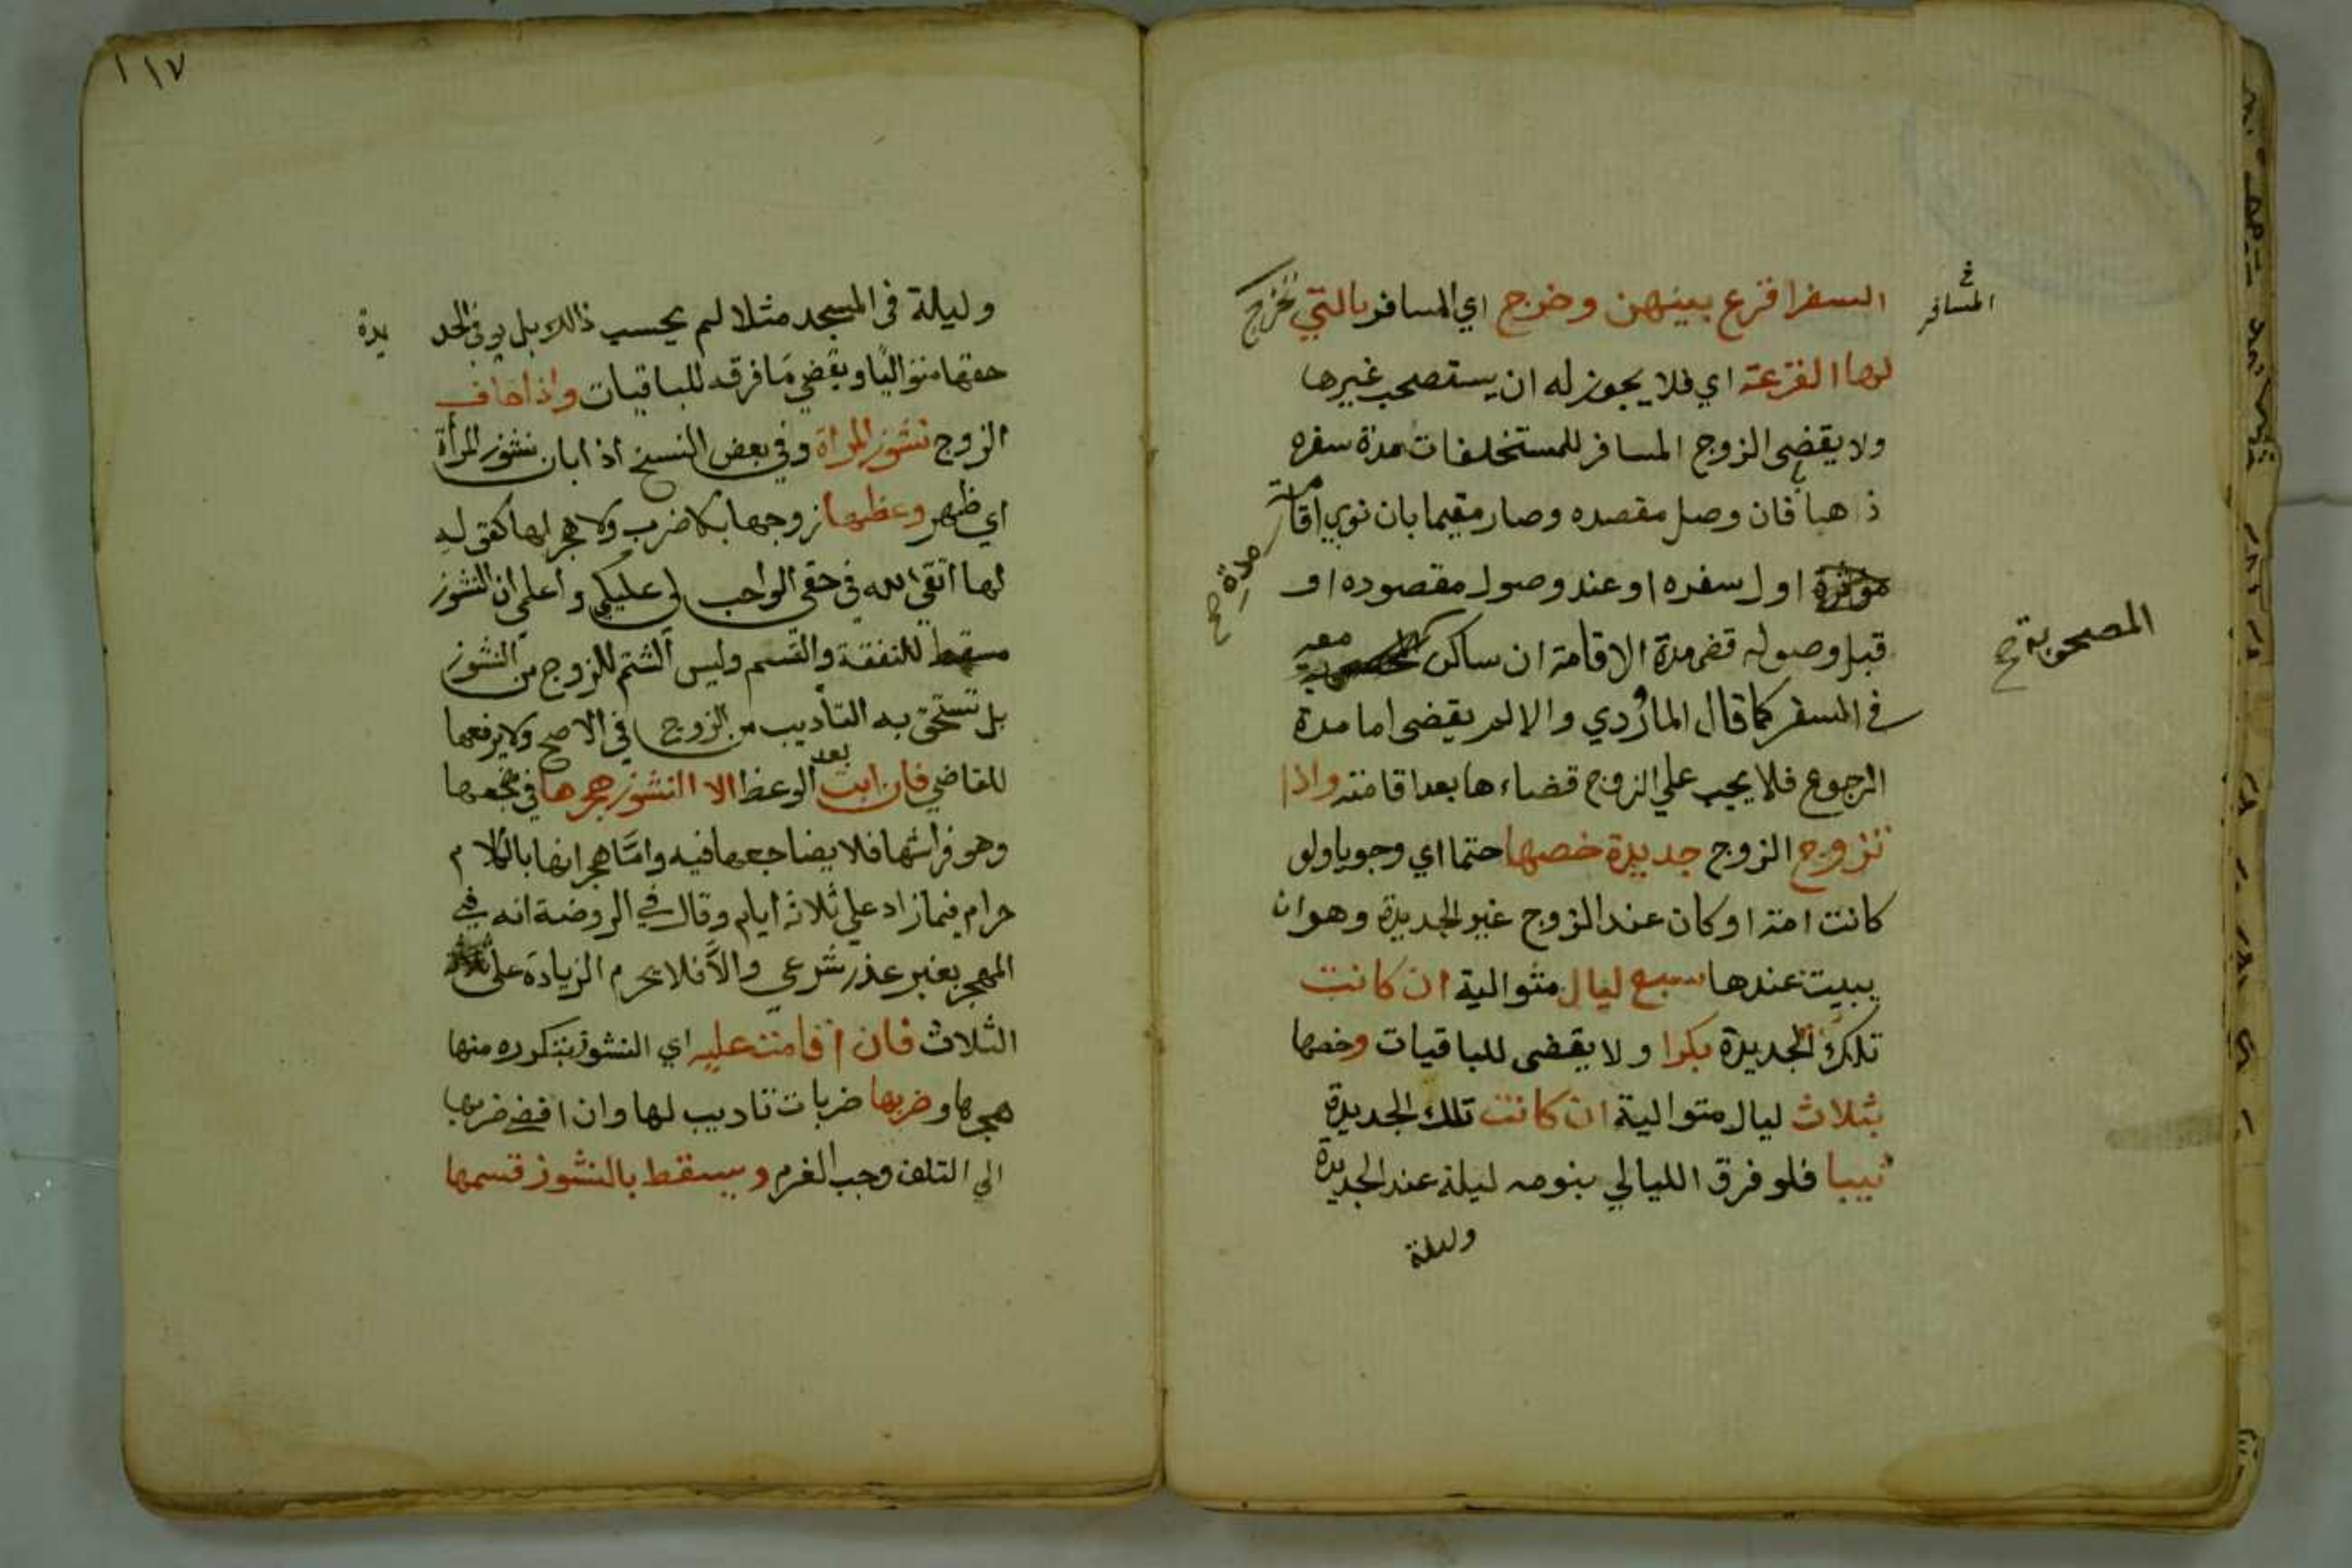 السفر اقرع بينهن وخرج اي المسافر بالتي تخرج
المسافر
لها القرعة اي فلا يجوز له ان يستصحب غيرها
ولا يقضي الزوج المسافر للمستخلفات مدة سفره
ذهبا فان وصل مقصده وصار مقيما بان نوي اقامة
مدة صح
مؤثرة اول سفره او عند وصول مقصوده او
قبل وصوله قضى مدة الاقامة ان ساكن معه
المصحوبة صح
في السفر كما قال الماوردي والا لم يقضى اما مدة
الرجوع فلا يجب علي الزوج قضاءها بعد اقامته واذا
تزوج الزوج جديدة خصها حتما اي وجوبا ولو
كانت امة او كان عند الزوج غير الجديدة وهو ان
يبيت عندها سبع ليال متوالية ان كانت
تلك الجديدة بكرا ولا يقضى للباقيات وخصها
بثلاث ليال متوالية ان كانت تلك الجديدة
ثيبا فلو فرق الليالي بنومه ليلة عند الجديدة
وليلة
١١٧
وليلة في المسجد مثلا لم يحسب ذالك بل يوفي الجد
يدة
حقها متواليا ويقضي ما فرقه للباقيات واذا خاف
الزوج نشوز المراة وفي بعض النسخ اذا بان نشوز المرأة
اي ظهر وعظها زوجها بلا ضرب ولا هجر لها كقوله
لها اتقي الله في حقي الواجب لي عليكي واعلمي ان النشوز
مسقط للنفقة والقسم وليس الشتم للزوج من النشوز
بل تستحق به التأديب من الزوج في الاصح ولا يرفعها
للقاضي فان ابت بعد الوعظ الا النشوز هجرها في مضجعها
وهو فراشها فلا يضاجعها فيه واما هجرانها بالكلام
حرام فيما زاد علي ثلاثة ايام وقال في الروضة انه في
الهجر بغير عذر شرعي والا فلا يحرم الزيادة علي
الثلاث فان اقامت عليه اي النشوز بتكرره منها
هجرها وضربها ضربات تاديب لها وان افضى ضربها
الي التلف وجب الغرم ويسقط بالنشوز قسمها